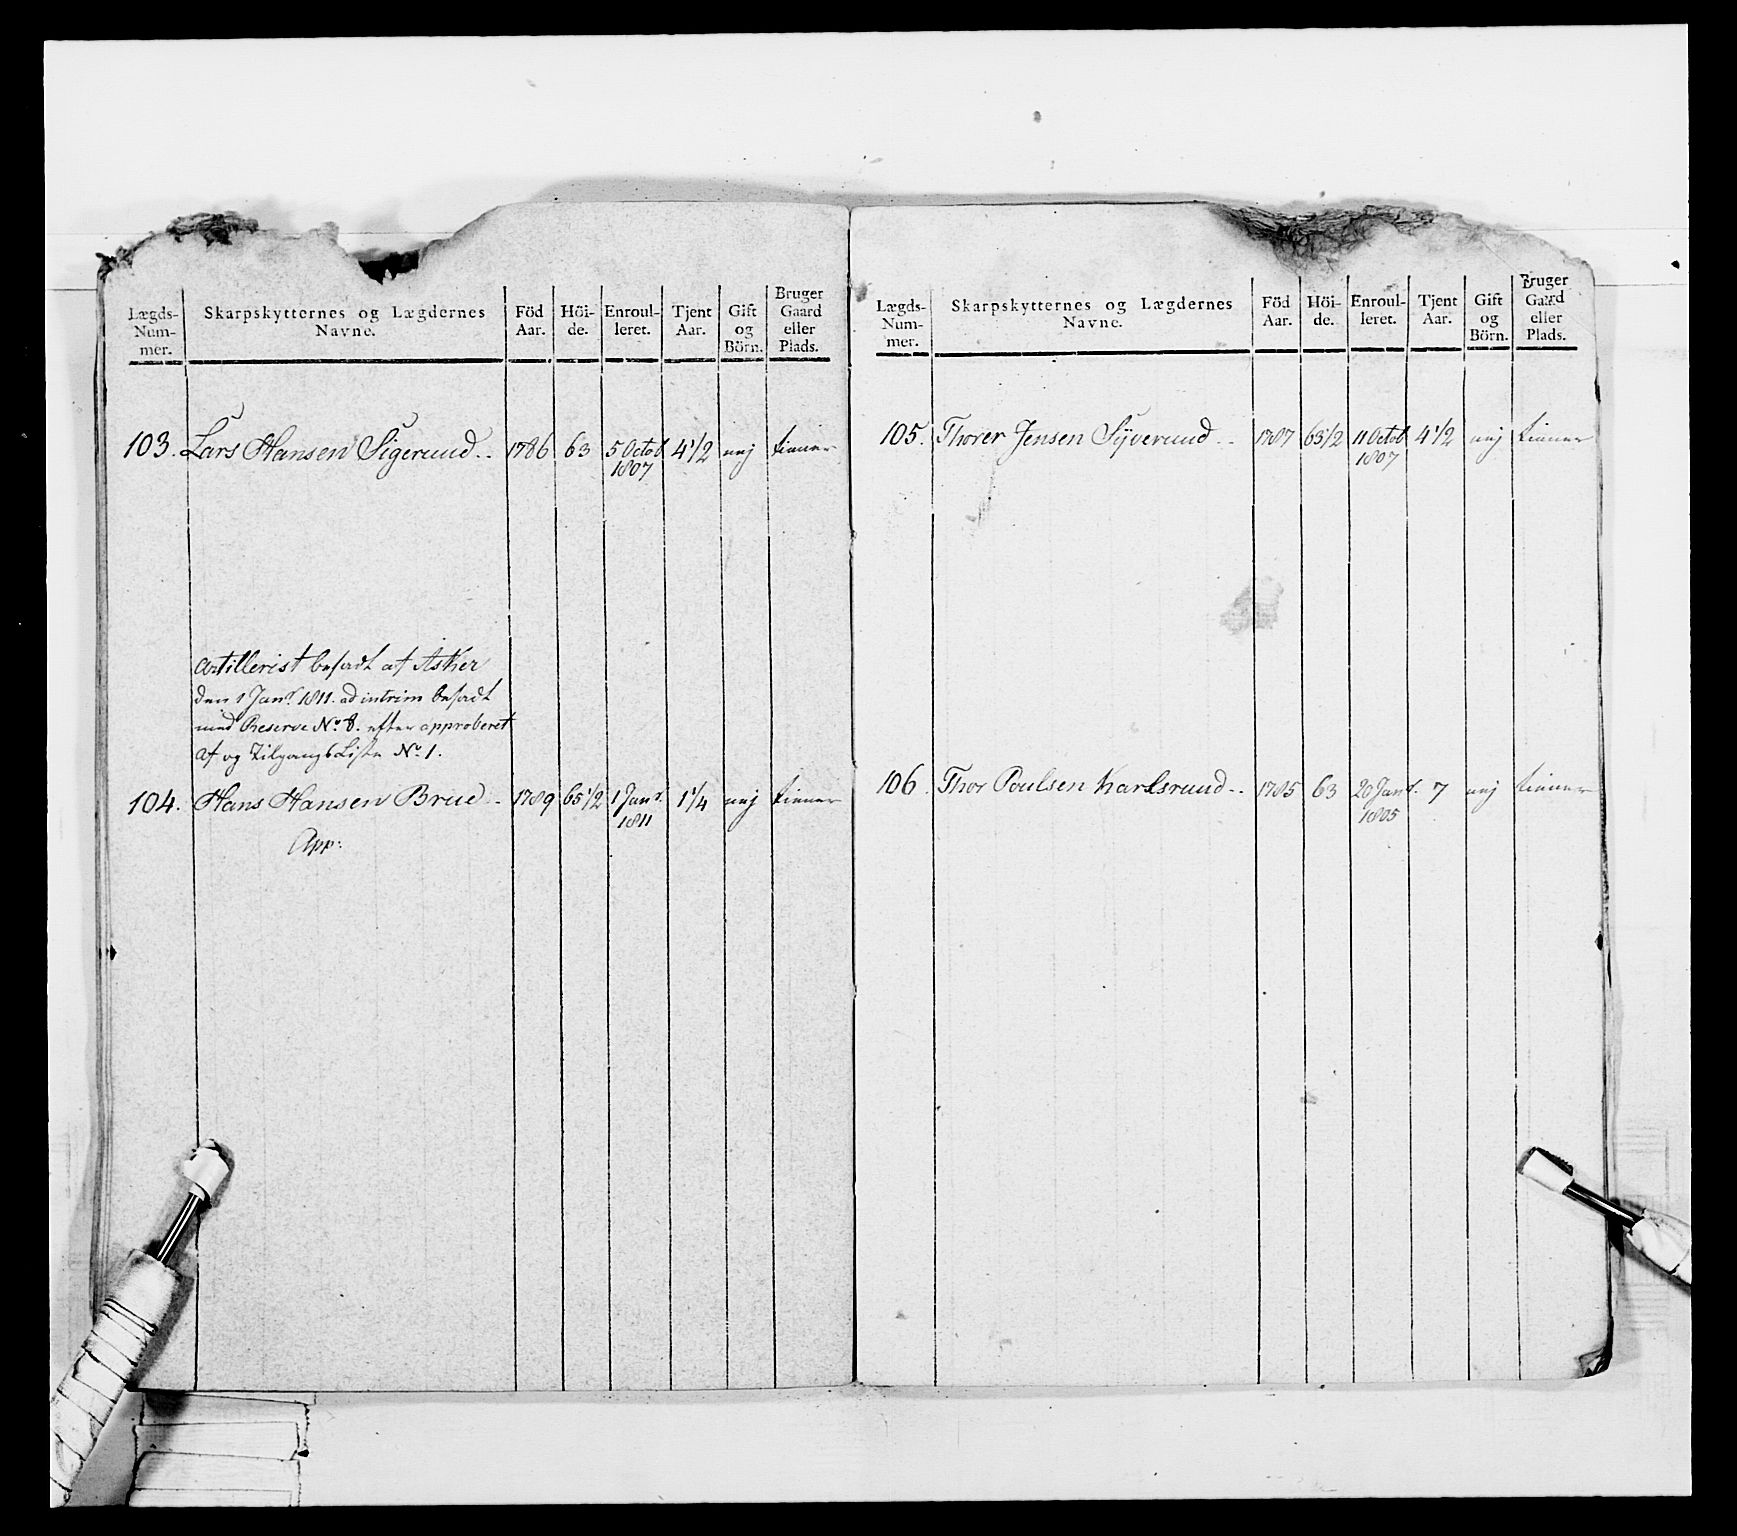 Lægds-Num-mer. Skarpskytternes og Lægdernes Navne. Föd Aar. Höi-de. Enroul-leret. Tjent Aar. Gift og Börn. Bruger Gaard eller Plads.
103. Lars Hansen Sigerund.. 1786 63 5 Octob 4 1/2 nej tiener
1807
Artillerist besadt af Asker
den 1 Janr. 1811. ad intrim besadt
med Reserve No. 8. efter approberet
af og Tilgangs Liste No. 1.
104. Hans Hansen Brue.. 1789 65 1/2 1 Janr. 1 1/4 nej tiener
1811
App:
Lægds-Num-mer. Skarpskytternes og Lægdernes Navne. Föd Aar. Höi-de. Enroul-leret. Tjent Aar. Gift og Börn. Bruger Gaard eller Plads.
105. Thorer Jensen Syverund.. 1787 65 1/2 11 Octob 4 1/2 nej tiener
1807
106. Thor Poulsen Karlsrund.. 1785 63 20 Janr. 7 nej tiener
1805